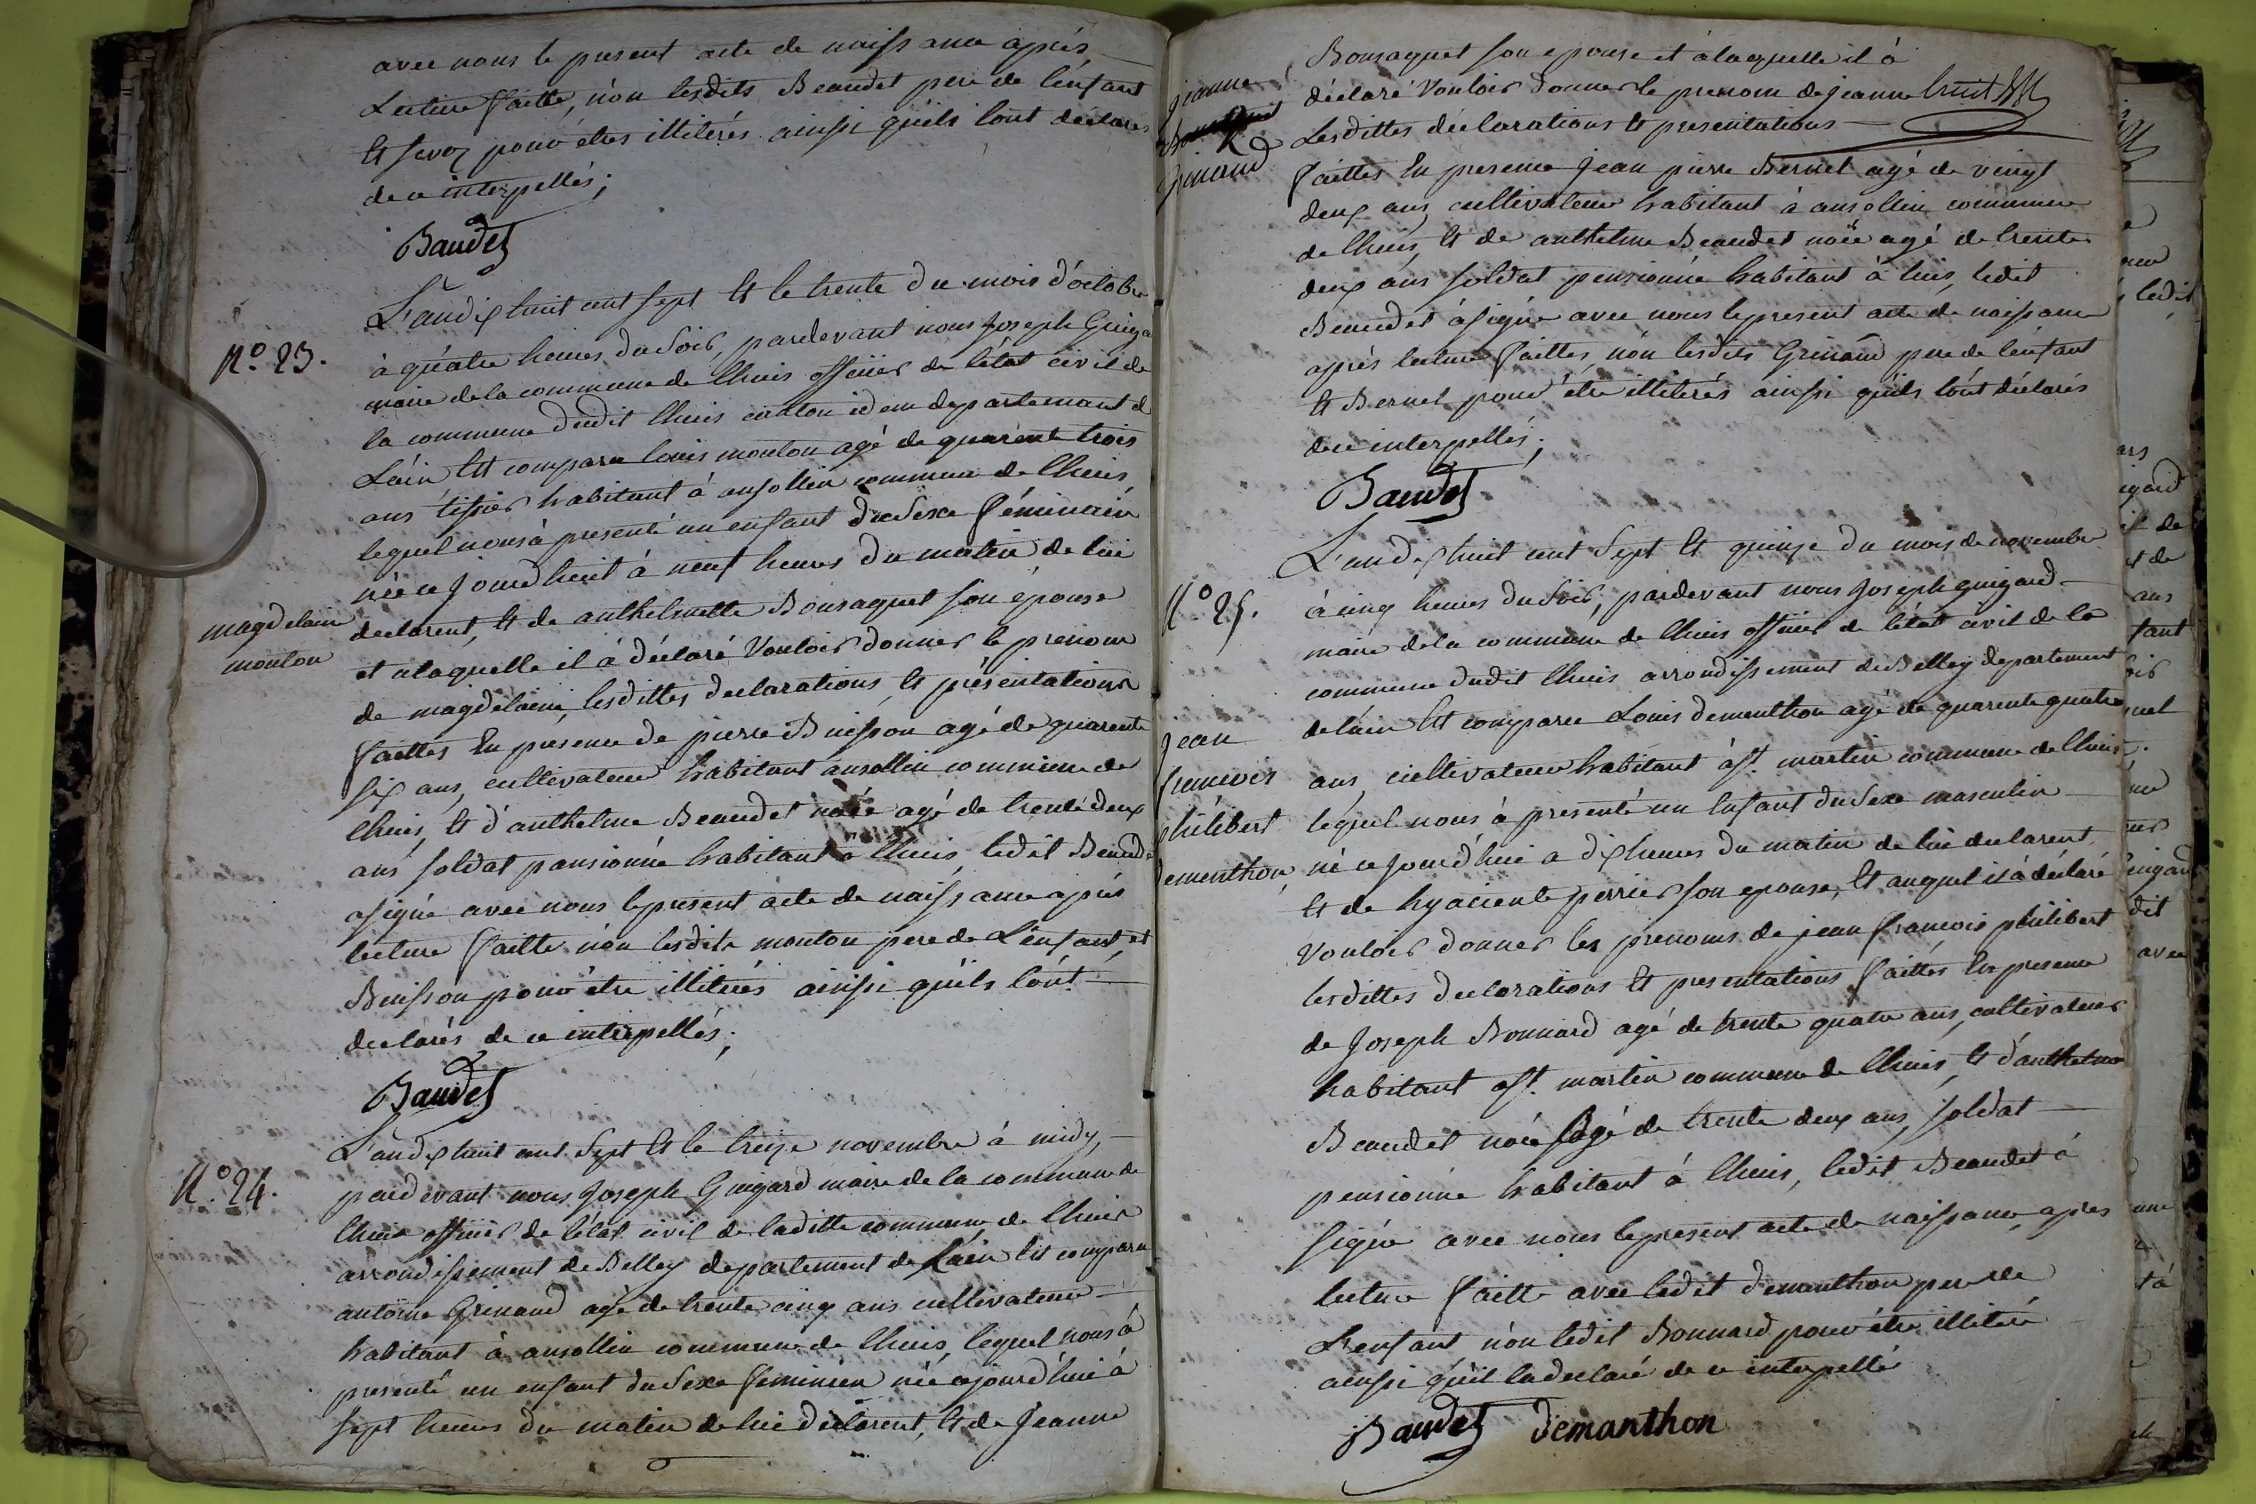 avec nous le present acte de naissance après
Lecture faitte, nón lesdits Beaudet pere de lénfant
Et pour étres illiterés ainssi qúils lont déclarés
de ce interpellés;
Baudet
N.º 23.
L'an dix huit cent sept Et le trente du mois dóctobre
à quátre heures du Soir, pardevant nous Joseph Guiga
maire de la commune de Lhuis officier de létat civil de
la commune dudit Lhuis canton idem departemant d
Láin Est comparu louis mouton agé de quarente trois
ans tissier habitant à ansollin commune de Lhuis,
lequel nous à presenté un enfant du Sexe féminin
née ce jourdhuit à neuf heures du matin de lui
declarent, Et de anthelmette Bonsaquet son épouse
magdelaine
mouton
et alaquelle il á déclaré Vouloir donner le prenom
de magdelaine, lesdittes declarations Et présentations
faittes En presence de pierre Buisson agé de quarente
six ans, cultivateur habitant ansollin commune de
Lhuis, Et d'anthelme Beaudet agé de trente deux
ans soldat pansionné habitant à Lhuis, ledit Beaudet
a signé avec nous le present acte de naissance après
lecture faitte nón lesdits mouton pere de L'enfant, et
Buisson pour être illiterés ainssi qúils lónt
declarés de ce interpellés;
Baudet
N.º 24.
L'an dix huit cent Sept Et le treize novembre à midy,
pardevant nous Joseph Guigard maire de la commune de
Lhuis officier de létat civil de laditte commune, de Lhuis
arrondissement de Belley departement de Láin Est comparu
antoine Grinand agé de trente cinq ans cultivateur
habitant à ansollin commune de Lhuis, lequel nous à
presenté un enfant du Sexe feminin née ce jourd'hui à
sept heures du matin de lui déclarent, Et de Jeanne
Bonsaquet son epouse et álaquelle il à
jeanne
Grinand
déclaré Vouloir donner le prenom de jeanne
Lesdittes déclarations Et presentations
faittes En presence Jean pierre Bernet agé de vingt
deux ans, cultivateur habitant à ansollin commune
de Lhuis, Et de anthelme Beaudet agé de trente
deux ans soldat pensionné habitant à luis, ledit
Beaudet à signé avec nous le present acte de naissance
après lecture faittes, nón lesdits Grinand pere de lénfant
Et Bernet pour étre illiterés ainssi qúils lónt déclarés
de ce interpellés;
Baudet
N.º 25.
L'an dix huit cent Sept Et quinze du mois de novembre
à cinq heures du Soir, pardevant nous Joseph guigard
maire de la commune de Lhuis officier de létat civil de la
commune dudit Lhuis arrondissement de Belley departement
de láin Est comparu Louis dementhon agé de quarente quatre
jean
francois
philibert
dementhon
ans, cultivateur habitant à St. martin commune de Lhuis.
léquel nous à presenté un Enfant du Sexe masculin
né ce jourd'hui a dix heures du matin de lui declarent,
Et de hyaciente perrier son epouse, Et auquel il à déclaré
Vouloir donner les prenoms de jean francois philibert
lesdittes declarations Et presentations faittes En presence
de Joseph Bonnard agé de trente quatre ans, cultivateur
habitant a St. martin commune de Lhuis, Et d'anthelme
Beaudet agé de trente deux ans, soldat
pensionné habitant á Lhuis, ledit Beaudet à
signé avec nous le present acte de naissance, apres
lecture faitte avec ledit demanthon pere de
L'enfant nón ledit Bonnard pour étre illiteré
ainssi qúil la declaré de ce interpellé
Baudet demanthon